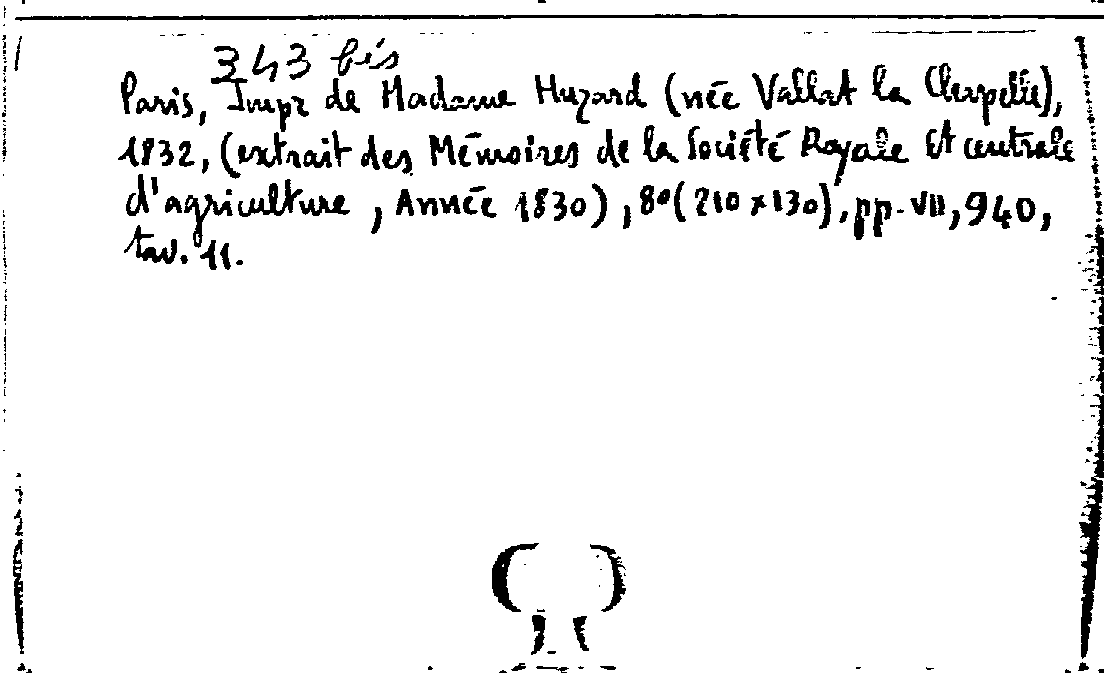 343 bis
Paris, Impr de Madame Huzard (née Vallat la Chapelle),
1832, (extrait des Mémoires de la Société Royale et centrale
d'agriculture, Année 1830), 8º (210 x 130), pp. VII, 940,
tav. 11.